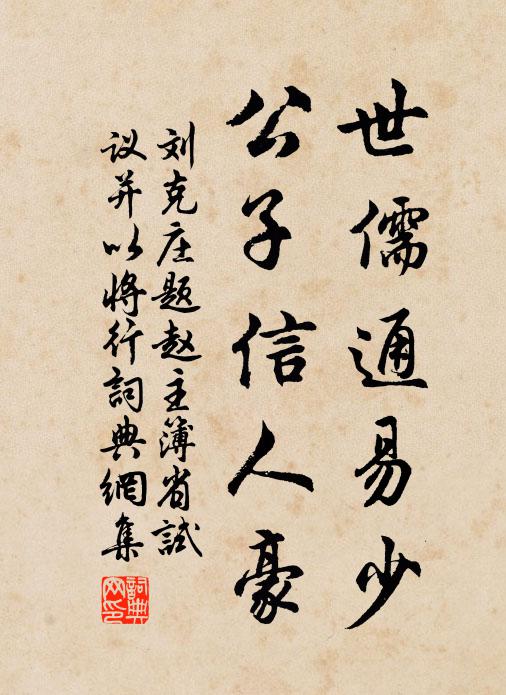 世儒通易少
公子信人豪
刘克庄题赵主簿省试
议并以将行詞典網集
詞典网印